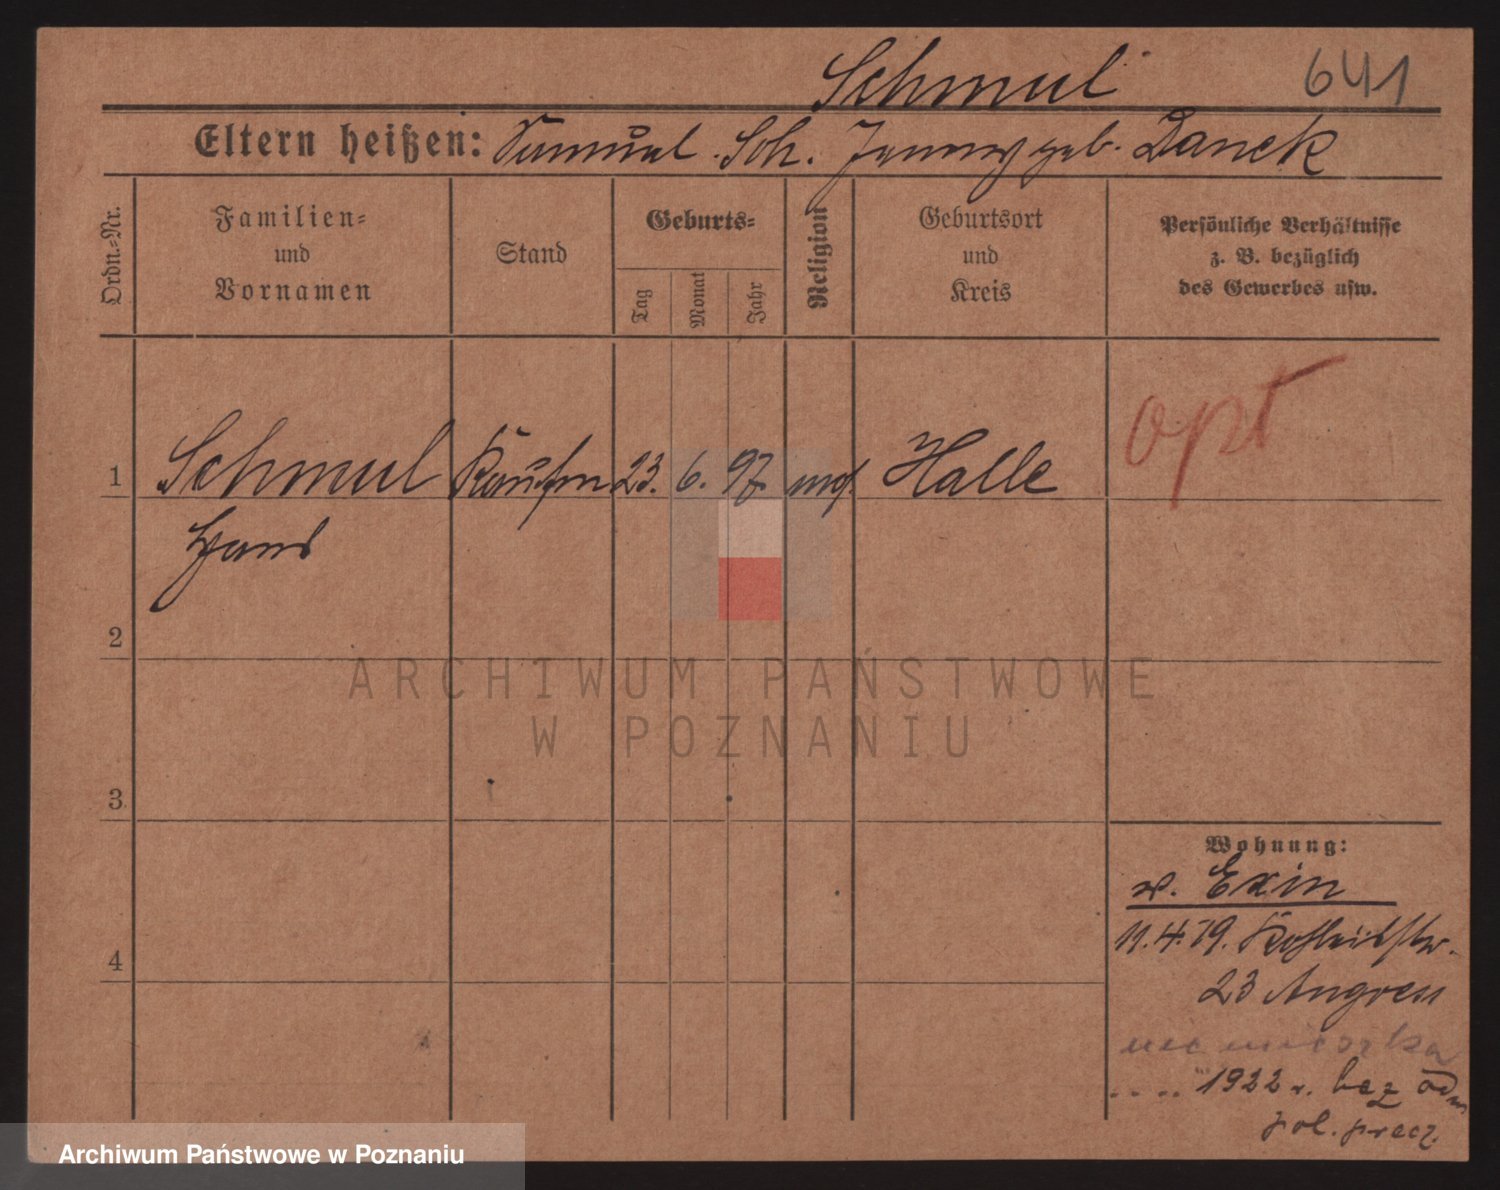 Schmul 641
Eltern heißen: Samuel Sch. Jenny geb. Danek
Ordn.-Nr.
Familien-
und
Vornamen
Stand
Geburts-
Tag
Monat
Jahr
Religion
Geburtsort
und
Kreis
Persönliche Verhältnisse
z. B. bezüglich
des Gewerbes usw.
opt
1 Schmul Kaufm 23. 6. 97 mos. Halle
Hans
2
3
4
Wohnung:
v. Exin
11.4.19.
23
nie mieszka
1922 r. bez odm
pol. precz
ARCHIWUM PAŃSTWOWE
W POZNANIU
Archiwum Państwowe w Poznaniu